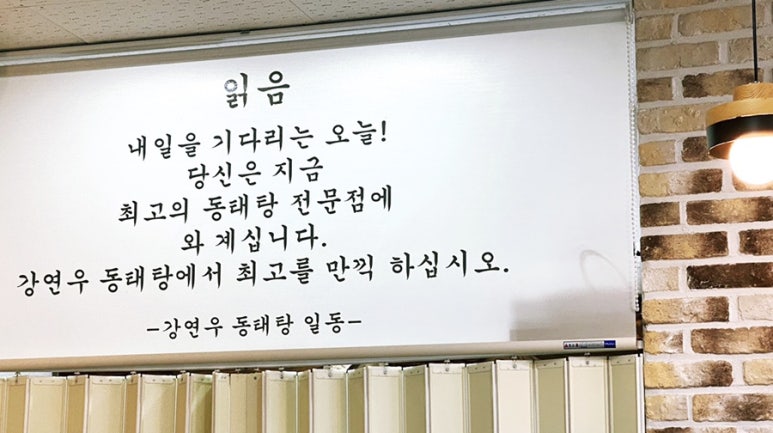 읽음
내일을 기다리는 오늘!
당신은 지금
최고의 동태탕 전문점에
와 계십니다.
강연우 동태탕에서 최고를 만끽 하십시오.
-강연우 동태탕 일동-